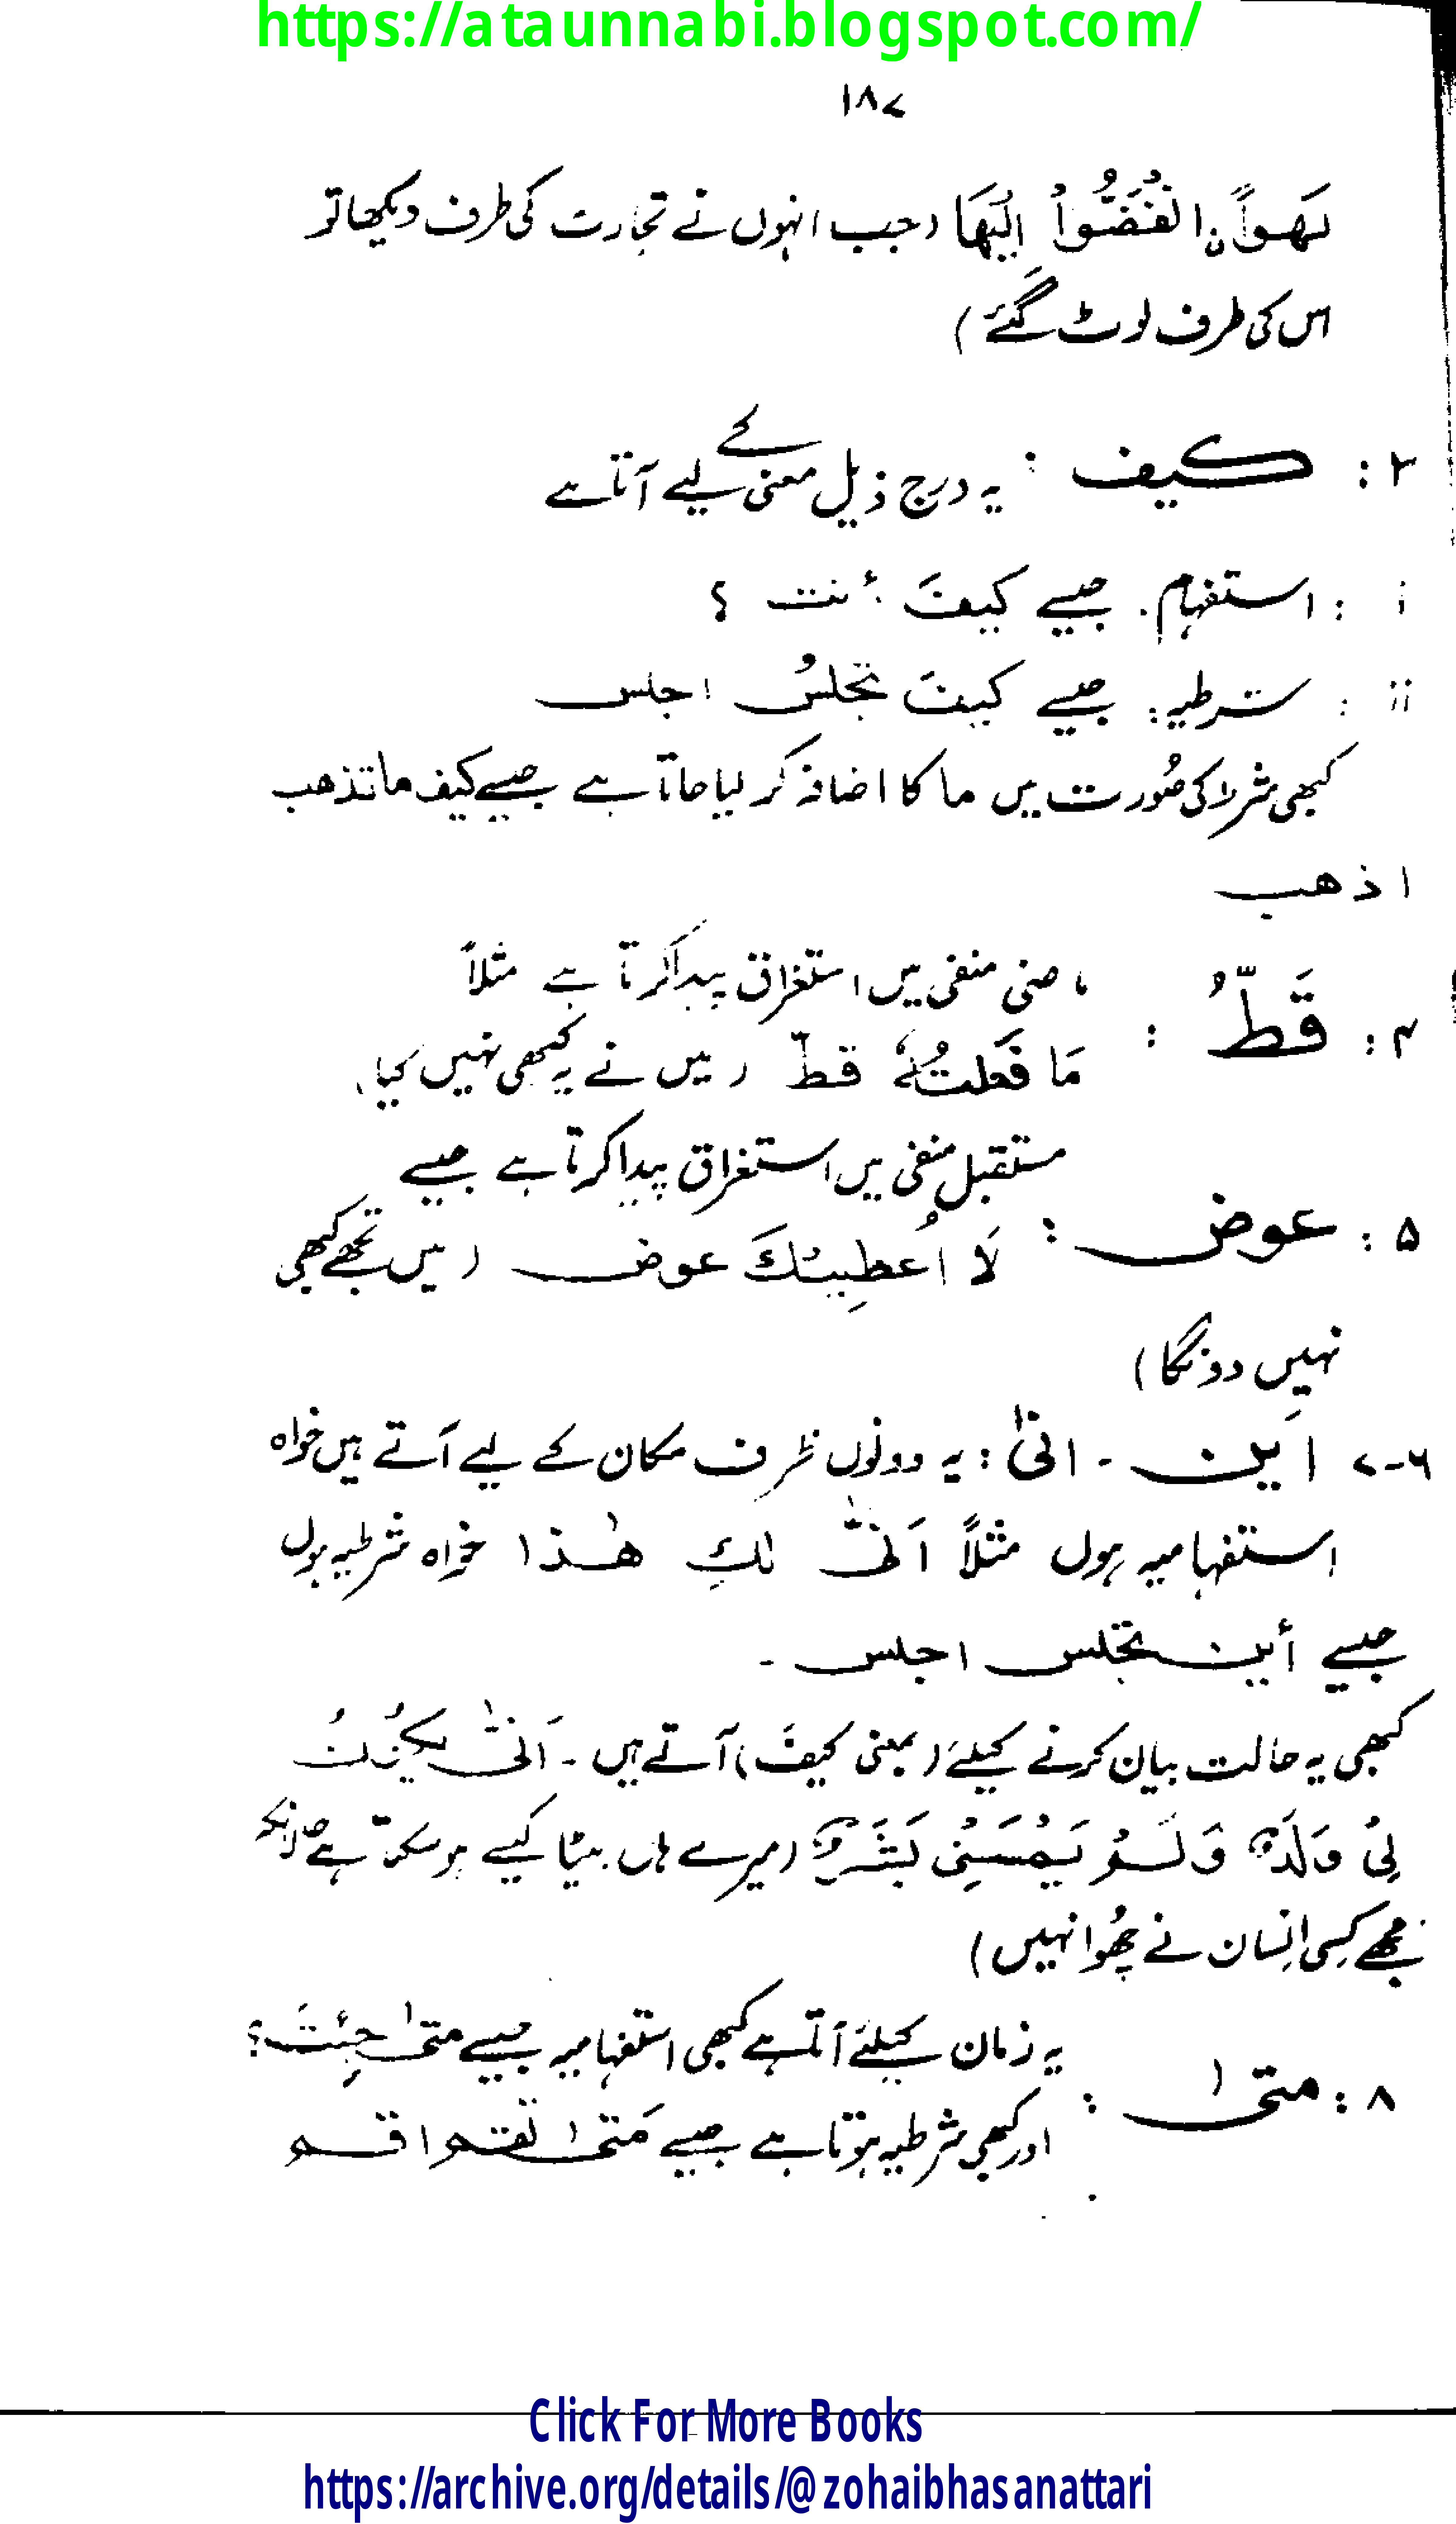 https://ataunnabi.blogspot.com/
۱۸۷
لَهْواً نِ انْفَضُّواْ اِلَيْهَا (جب انہوں نے تجارت کی طرف دیکھا تو
اس کی طرف لوٹ گئے)
۳: کیف : یہ درج ذیل معنی کے لیے آتا ہے
i : استفہام. جیسے کیفَ أنت ؟
ii : شرطیہ: جیسے کیفَ تجلسُ اجلس
کبھی شرط کی صُورت میں ما کا اضافہ کر لیا جاتا ہے جیسے کیف ما تذھب
اذھب
۴: قَطُّ : ماضی منفی میں استغراق پیدا کرتا ہے مثلاً
مَا فَعَلتُہٗ قطّ (میں نے یہ کبھی نہیں کیا)
مستقبل منفی میں استغراق پیدا کرتا ہے جیسے
۵: عوض : لَا اُعطِیکَ عوض (میں تجھے کبھی
نہیں دونگا)
۶-۷ اَین - انیٰ : یہ دونوں ظرف مکان کے لیے آتے ہیں خواہ
استفہامیہ ہوں مثلاً اَنّٰی لكِ ھٰذا خواہ شرطیہ ہوں
جیسے أین تجلس اجلس -
کبھی یہ حالت بیان کرنے کیلئے (بمعنی کیفَ) آتے ہیں - اَنّٰی یَکُوْنُ
لِیْ وَلَدٌ وَلَمْ یَمْسَسْنِیْ بَشَرٌ (میرے ہاں بیٹا کیسے ہو سکتا ہے حالانکہ
مجھے کِسی اِنسان نے چھُوا نہیں)
یہ زمان کیلئے آتا ہے کبھی استفہامیہ جیسے متیٰ جِئتَ؟
۸: متیٰ : اور کبھی شرطیہ ہوتا ہے جیسے مَتیٰ تقم اقم
Click For More Books
https://archive.org/details/@zohaibhasanattari